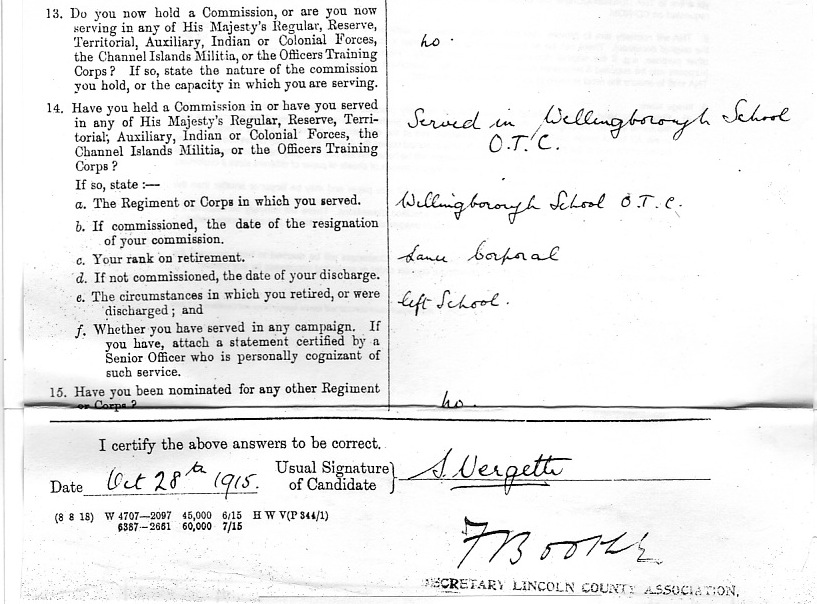 13. Do you now hold a Commission, or are you now
serving in any of His Majesty's Regular, Reserve,
Territorial, Auxiliary, Indian or Colonial Forces,
the Channel Islands Militia, or the Officers Training
Corps? If so, state the nature of the commission
you hold, or the capacity in which you are serving.
no.
14. Have you held a Commission in or have you served
in any of His Majesty's Regular, Reserve, Terri-
torial, Auxiliary, Indian or Colonial Forces, the
Channel Islands Militia, or the Officers Training
Corps?
Served in Wellingborough School
O.T.C.
If so, state :—
a. The Regiment or Corps in which you served.
Wellingborough School O.T.C.
b. If commissioned, the date of the resignation
of your commission.
c. Your rank on retirement.
Lance Corporal
d. If not commissioned, the date of your discharge.
e. The circumstances in which you retired, or were
discharged; and
left School.
f. Whether you have served in any campaign. If
you have, attach a statement certified by a
Senior Officer who is personally cognizant of
such service.
15. Have you been nominated for any other Regiment
or Corps?
no.
I certify the above answers to be correct.
Date Oct 28th 1915. Usual Signature of Candidate } S. Vergette
(8 8 18) W 4707—2097 45,000 6/15 H W V(P 344/1)
6387—2661 60,000 7/15
SECRETARY LINCOLN COUNTY ASSOCIATION.